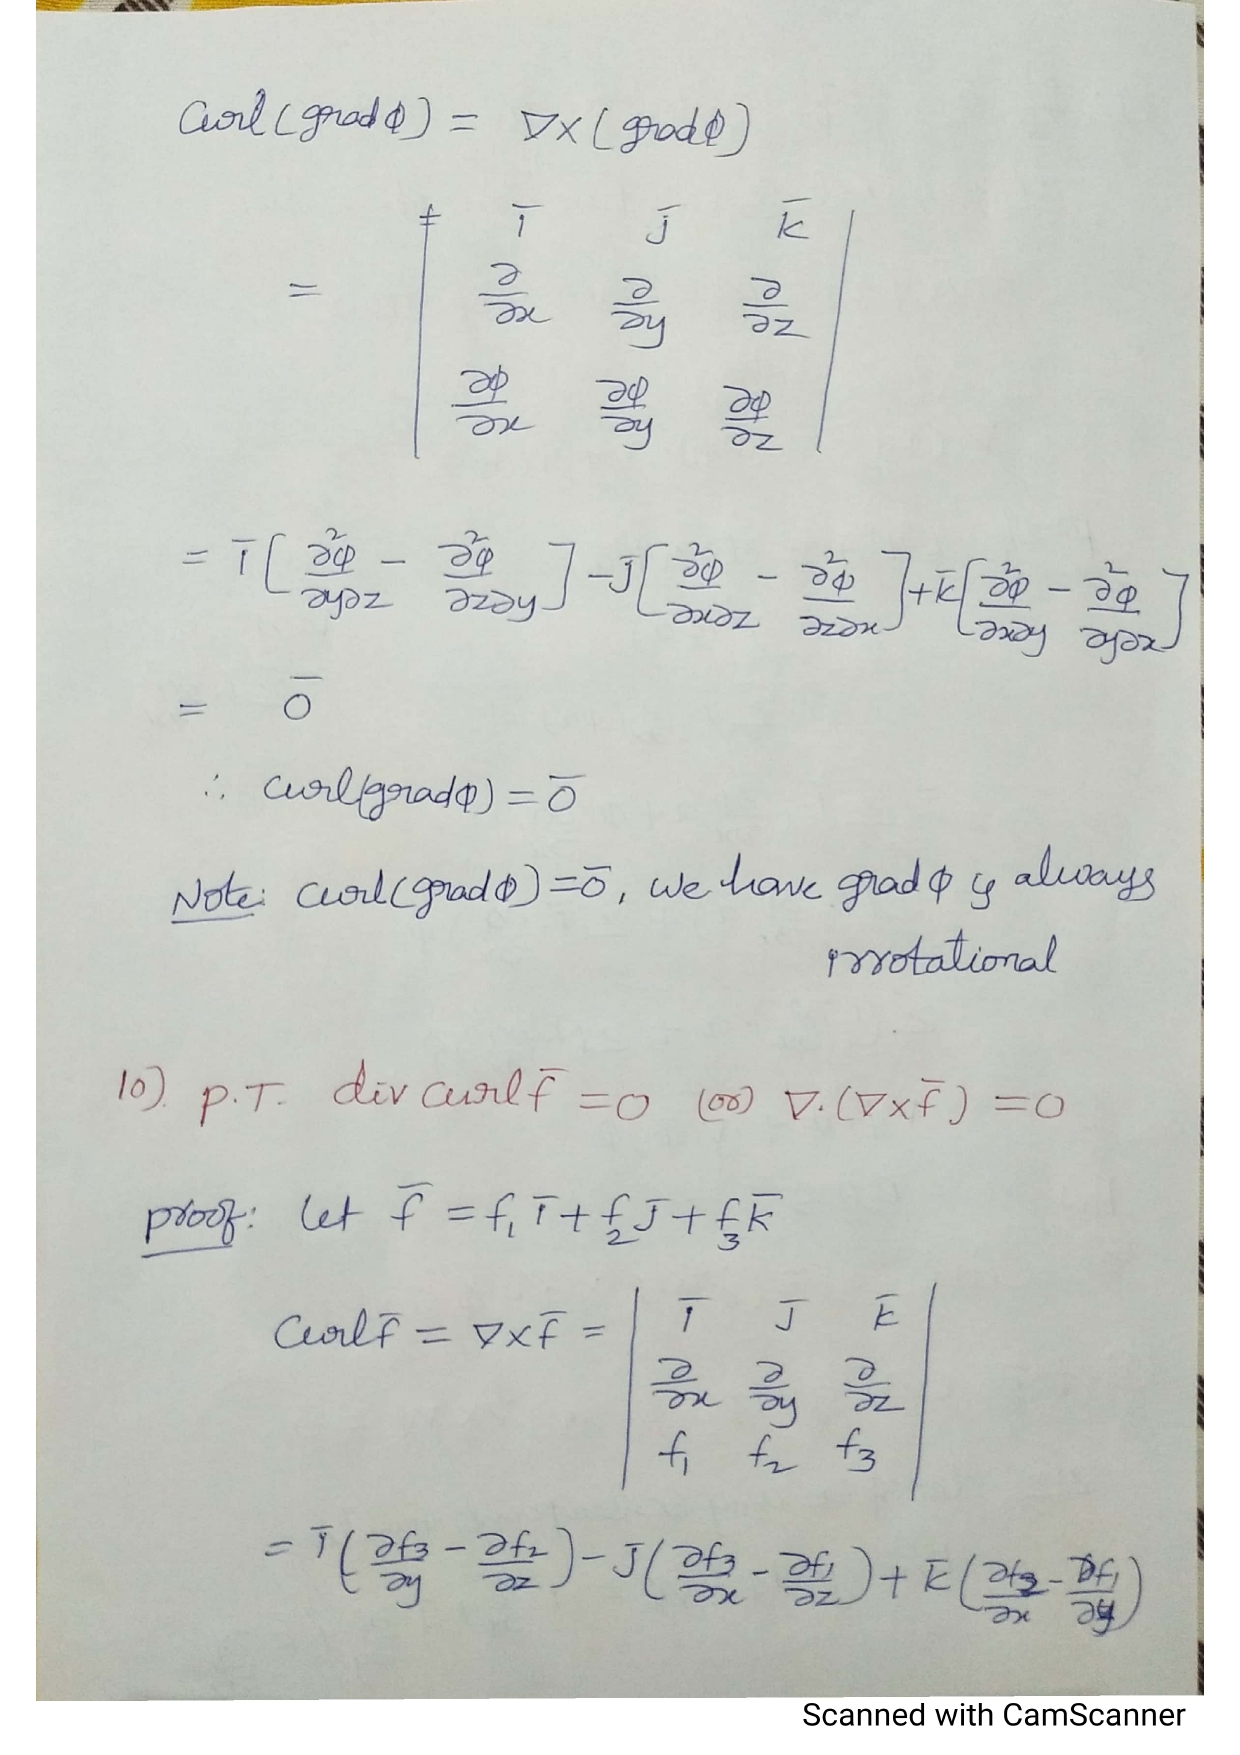 Curl(gradϕ) = ∇×(gradϕ)
= | i̅ j̅ k̅ |
| ∂/∂x ∂/∂y ∂/∂z |
| ∂ϕ/∂x ∂ϕ/∂y ∂ϕ/∂z |
= i̅[∂²ϕ/∂y∂z − ∂²ϕ/∂z∂y] − j̅[∂²ϕ/∂x∂z − ∂²ϕ/∂z∂x] + k̅[∂²ϕ/∂x∂y − ∂²ϕ/∂y∂x]
= 0̅
∴ curl(gradϕ) = 0̅
Note: curl(gradϕ) = 0̅, we have gradϕ is always
irrotational
10). P.T. div curl f̅ = 0 (or) ∇.(∇×f̅) = 0
proof: Let f̅ = f₁ i̅ + f₂ j̅ + f₃ k̅
Curl f̅ = ∇×f̅ = | i̅ j̅ k̅ |
| ∂/∂x ∂/∂y ∂/∂z |
| f₁ f₂ f₃ |
= i̅(∂f₃/∂y − ∂f₂/∂z) − j̅(∂f₃/∂x − ∂f₁/∂z) + k̅(∂f₂/∂x − ∂f₁/∂y)
Scanned with CamScanner